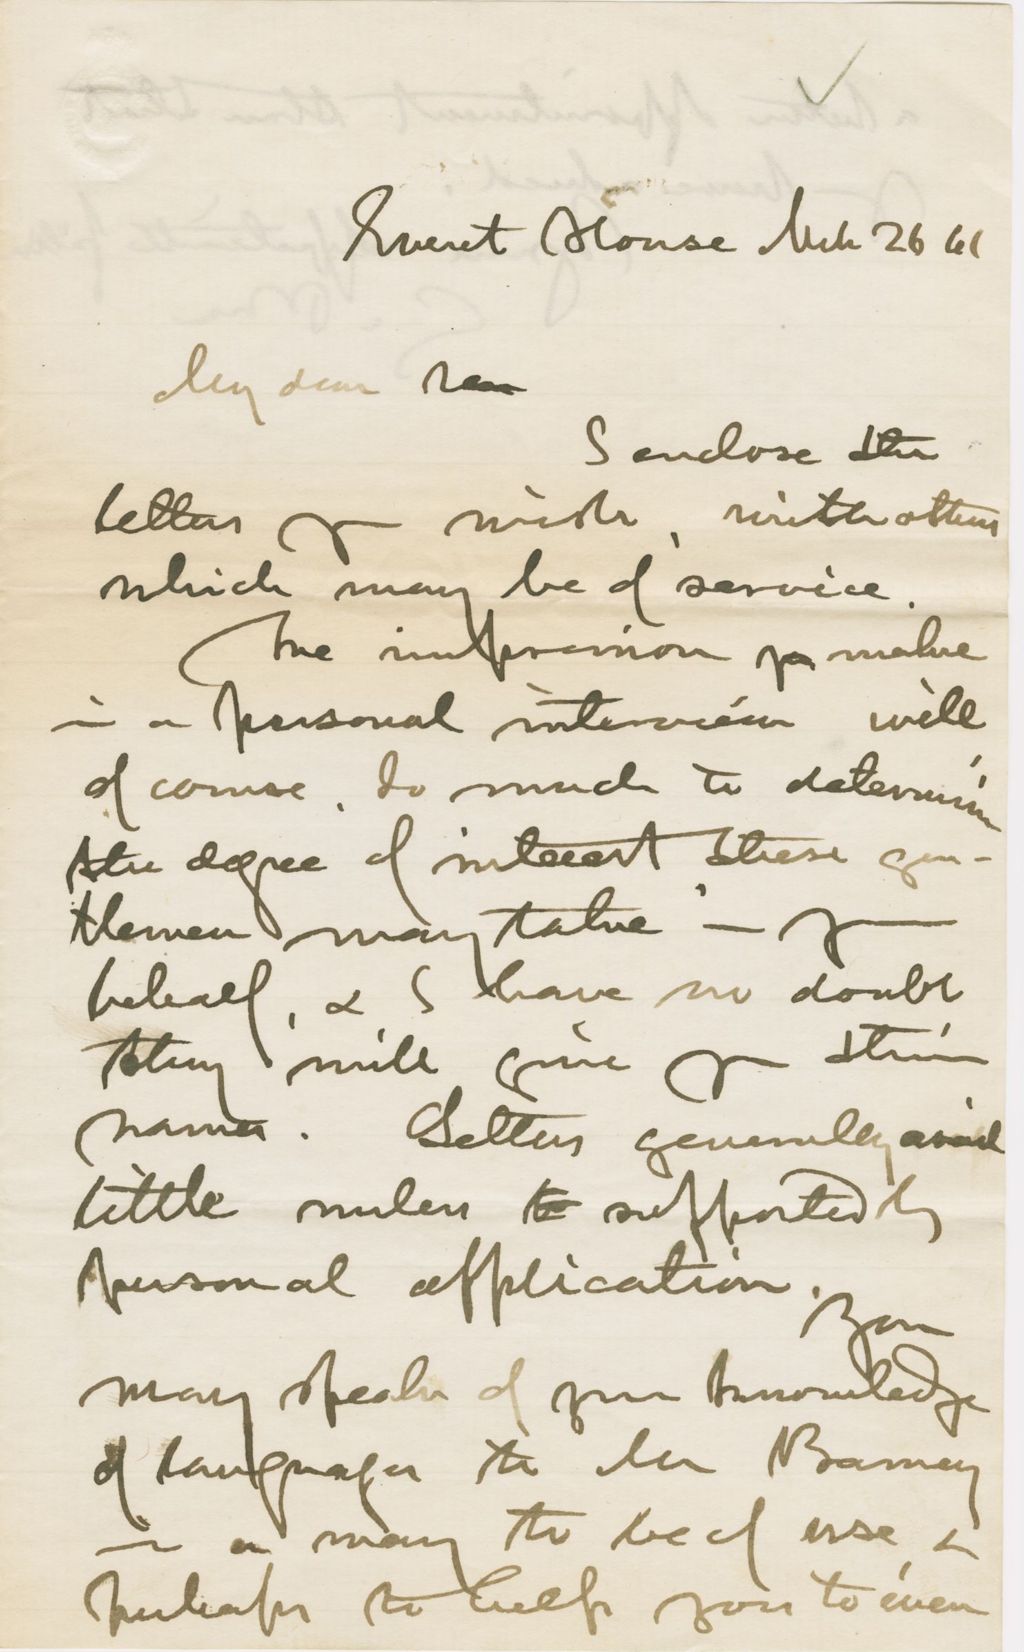 Everet House Mch 26 61
My dear
I enclose the
letters you wish, with others
which may be of service.
The impression you make
in a personal interview will
of course, do much to determine
the degree of interest these gen-
tlemen may take in your
behalf, & I have no doubt
they will give you their
names. Letters generally avail
little unless supported by
personal application. You
may speak of your knowledge
of languages to Mr Barney
in a way to be of use, &
perhaps to help you to even